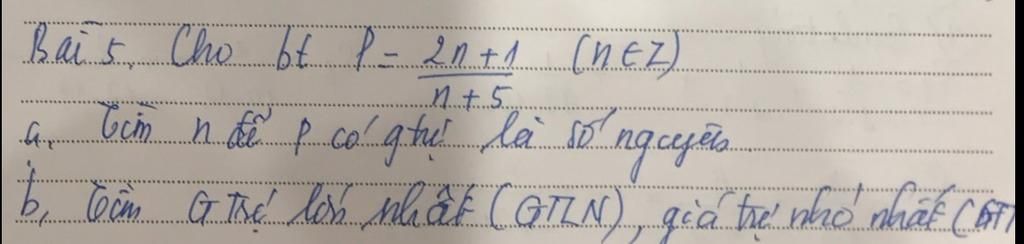 Bài 5. Cho bt P = \frac{2n+1}{n+5} (n∈Z)
a, tìm n để P có gtrị là số nguyên
b, tìm GTrị lớn nhất (GTLN), giá trị nhỏ nhất (GT